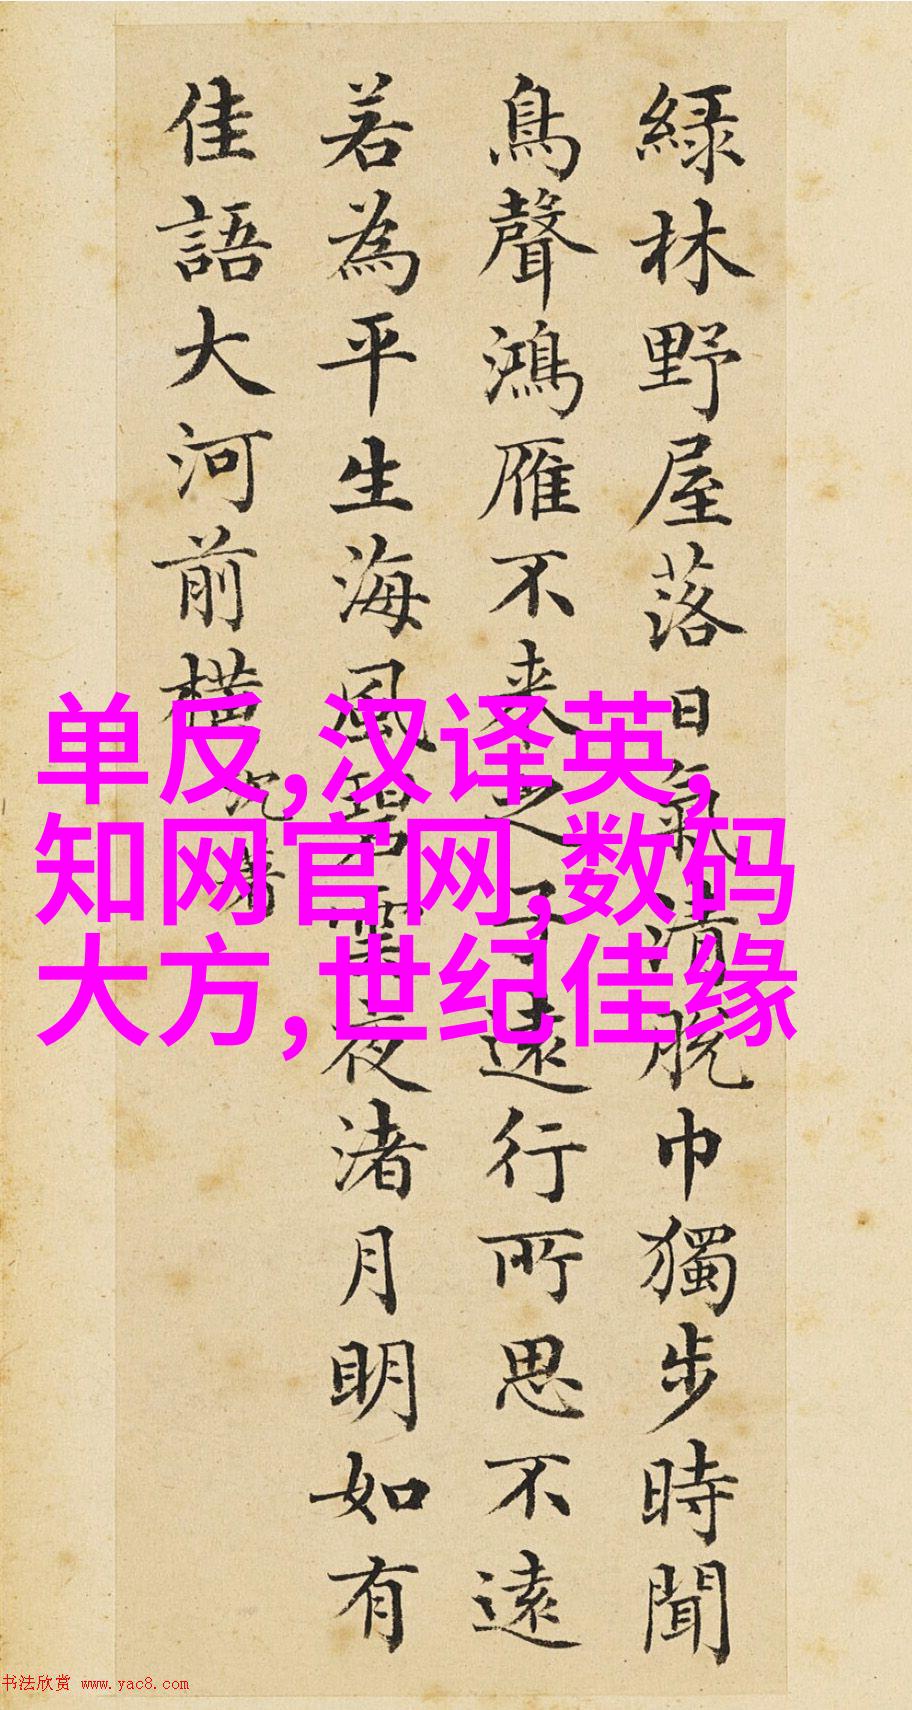 綠林野屋落日氣清脫巾獨步時聞
鳥聲鴻雁不来之子遠行所思不遠
若為平生海風碧雲夜渚月明如有
佳語大河前橫
单反,汉译英,
知网官网,数码
大方,世纪佳缘
书法欣赏 www.yac8.com